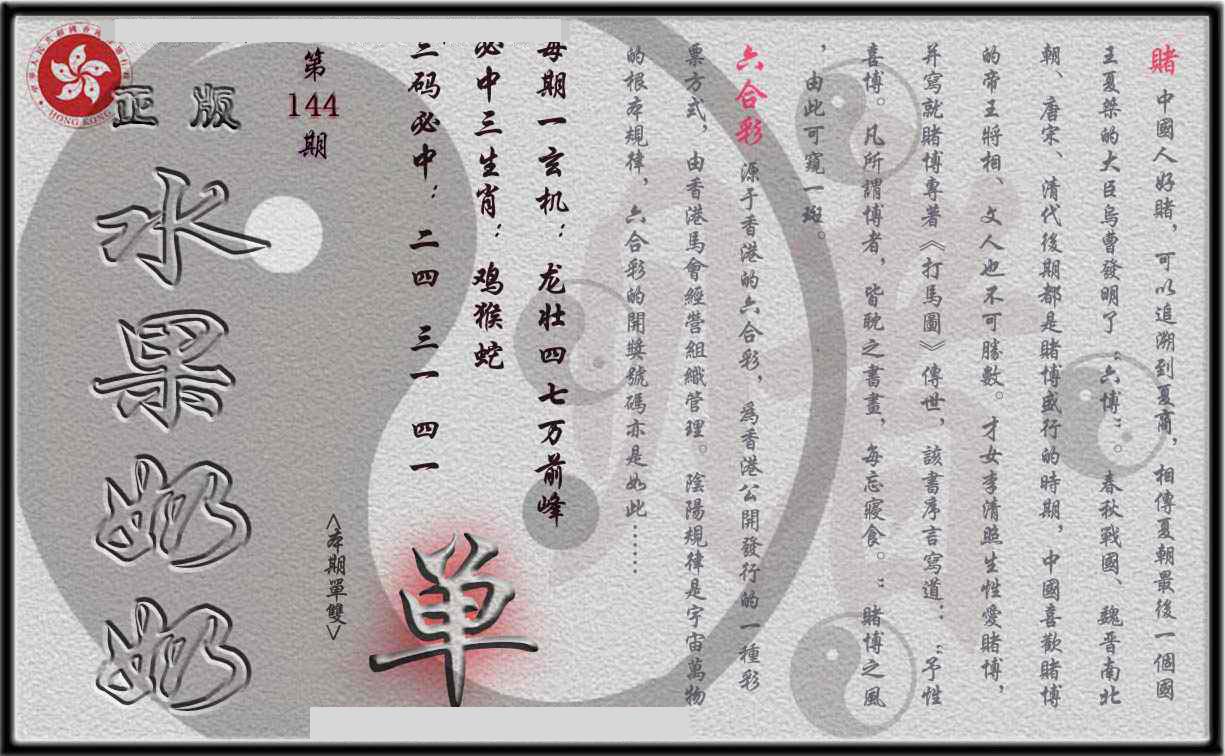 賭 中國人好賭，可以追溯到夏商，相傳夏朝最後一個國
王夏桀的大臣烏曹發明了“六博”。春秋戰國、魏晋南北
朝、唐宋、清代後期都是賭博盛行的時期，中國喜歡賭博
的帝王將相、文人也不可勝數。才女李清照生性愛賭博，
并寫就賭博專著《打馬圖》傳世，該書序言寫道：“予性
喜博。凡所謂博者，皆耽之書畫，每忘寢食。”賭博之風
，由此可窺一斑。
六合彩 源于香港的六合彩，爲香港公開發行的一種彩
票方式，由香港馬會經營組織管理。陰陽規律是宇宙萬物
的根本規律，六合彩的開獎號碼亦是如此……
每期一玄机：龙壮四七万前峰
必中三生肖：鸡猴蛇
三码必中：二四 三一 四一
<本期單雙>
单
第144期
正版
水果奶奶
HONG KONG